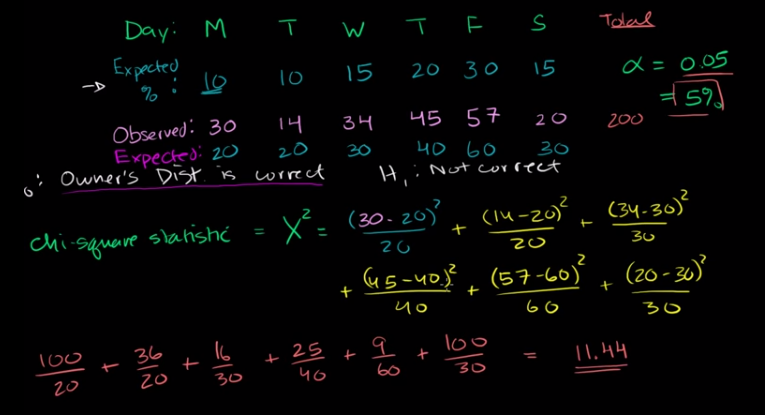 Day: M T W T F S Total
Expected %: 10 10 15 20 30 15 α = 0.05
= 5%
Observed: 30 14 34 45 57 20 200
Expected: 20 20 30 40 60 30
o: Owner's Dist. is correct H₁: Not correct
chi-square statistic = X² = (30-20)²/20 + (14-20)²/20 + (34-30)²/30
+ (45-40)²/40 + (57-60)²/60 + (20-30)²/30
100/20 + 36/20 + 16/30 + 25/40 + 9/60 + 100/30 = 11.44